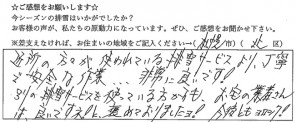 ☆ご感想をお願いします☆
今シーズンの排雪はいかがでしたか？
お客様の声が、私たちの原動力になっています。ぜひ、ご感想をお聞かせ下さい。
※差支えなければ、お住まいの地域をご記入ください→(札幌市)(北区)
近所の方々が使われている排雪サービスより、丁寧
で安全な作業…非常に良いです!
別の排雪サービスを使っている方からも、お宅の業者さん
は良いですネ!と、褒めておりましたヨ! 今後もヨロシク!